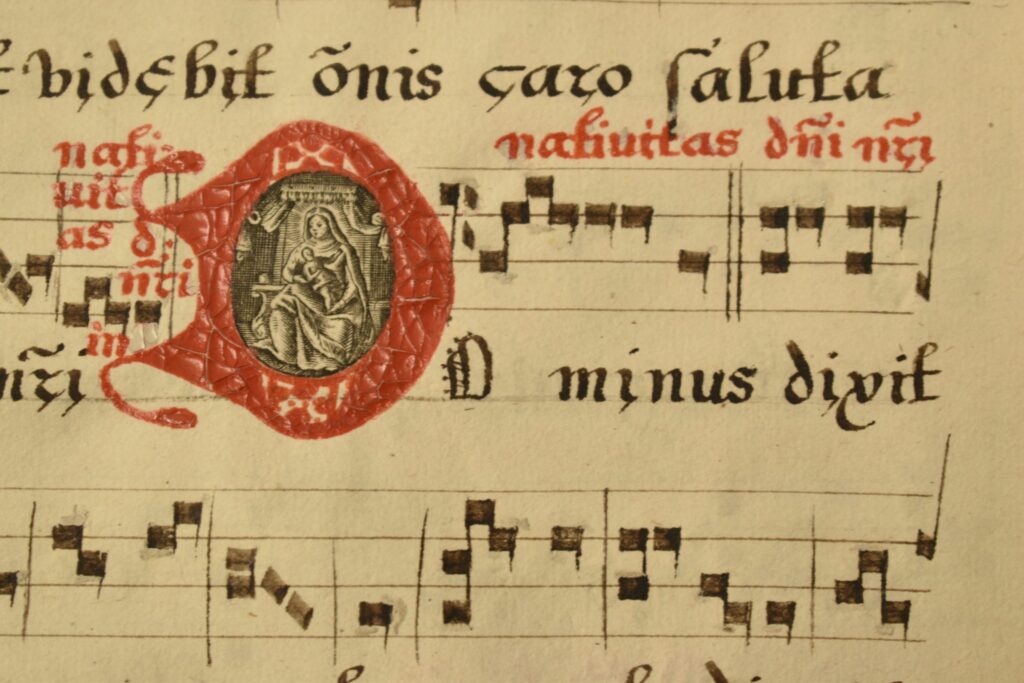 videbit õnis caro saluta
nati
uit
as d.
nr̃i
in
natiuitas dñi nr̃i
nr̃i
D minus dixit